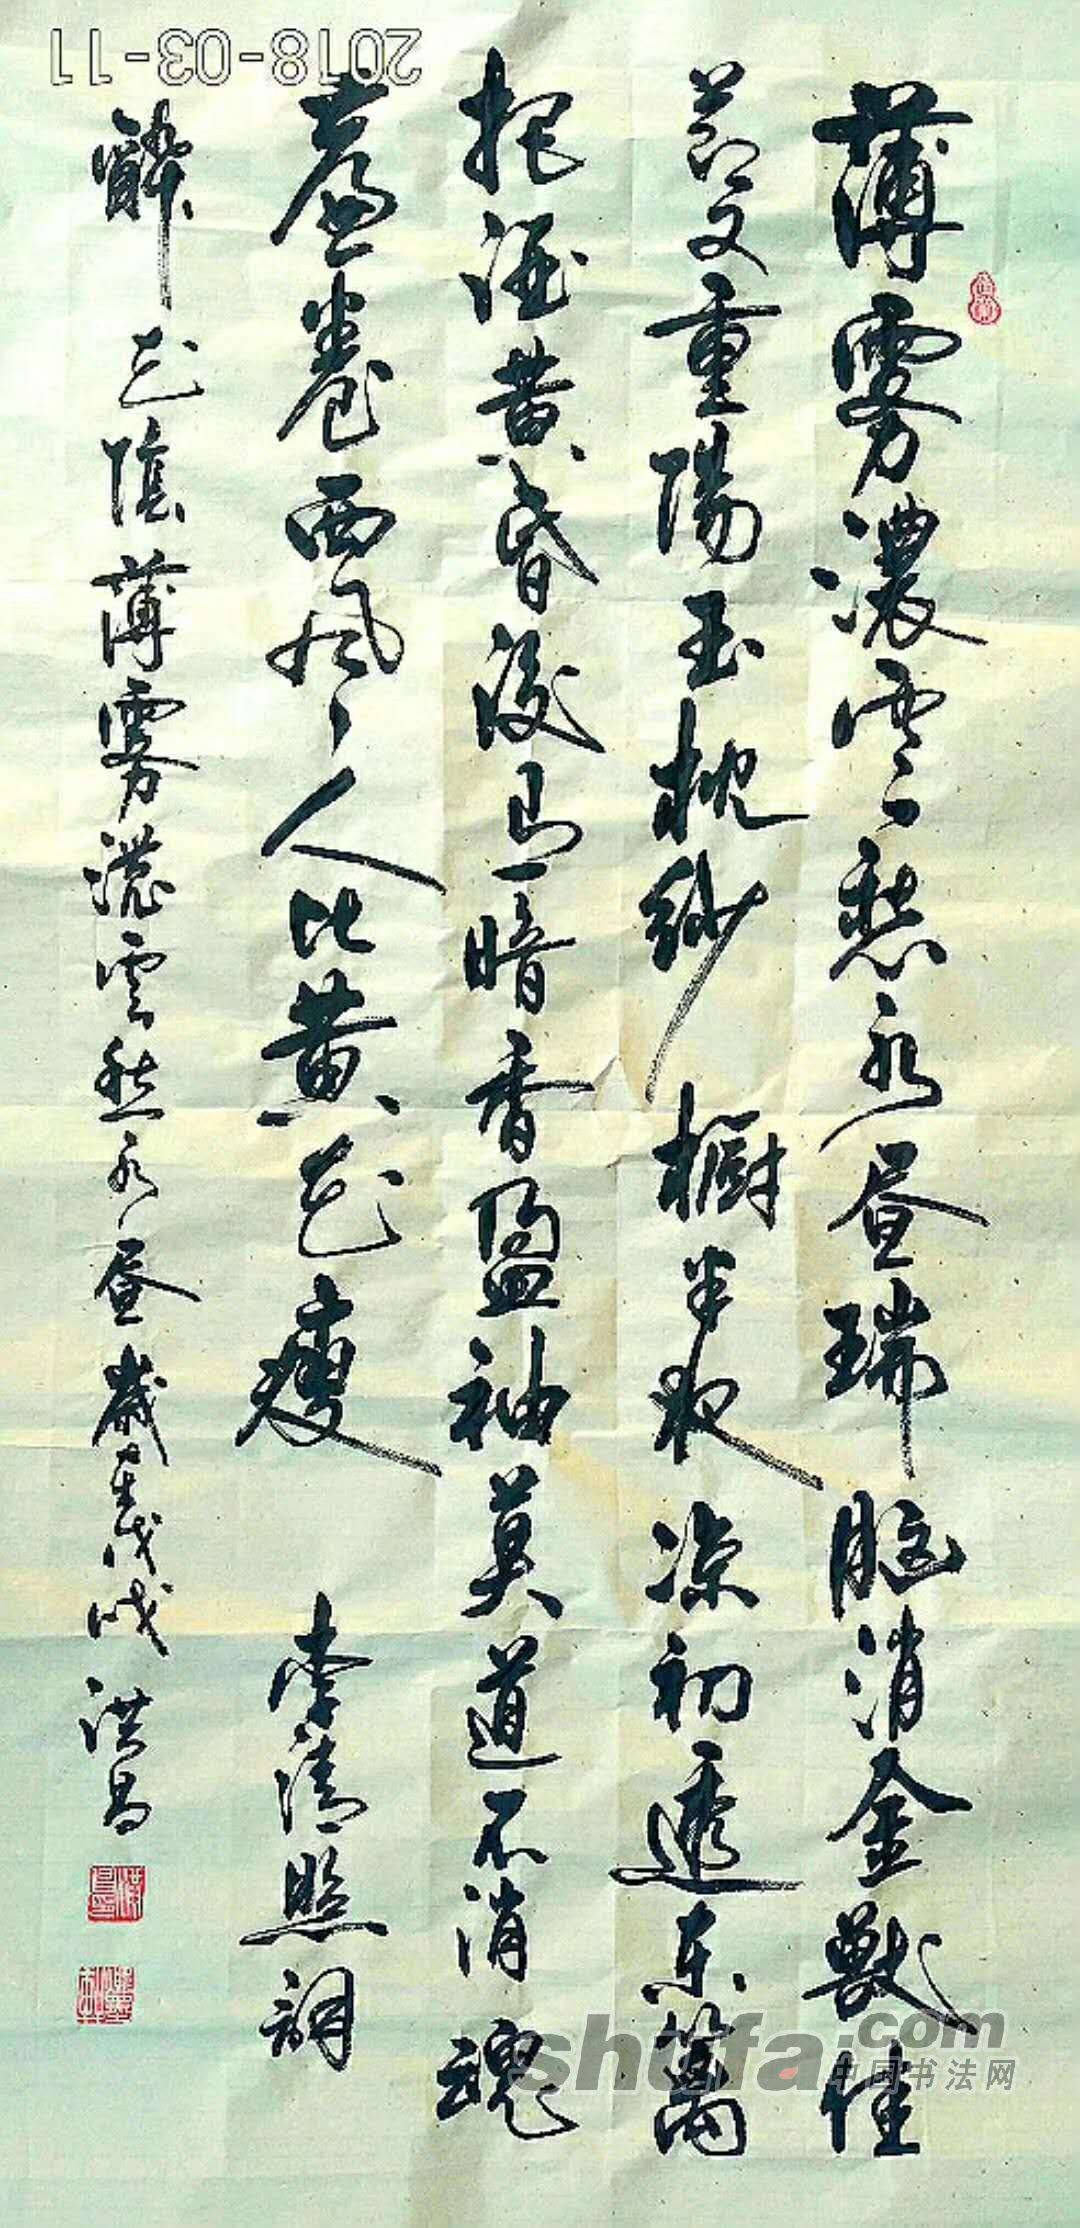 薄雾浓云愁永昼瑞脑消金兽佳
节又重陽玉枕纱橱半夜凉初透东篱
把酒黄昏后有暗香盈袖莫道不消魂
帘卷西风人比黄花瘦 李清照词
醉花阴薄雾浓云愁永昼岁在戊戌洪昌
2018-03-11
shufa.com
中国书法网